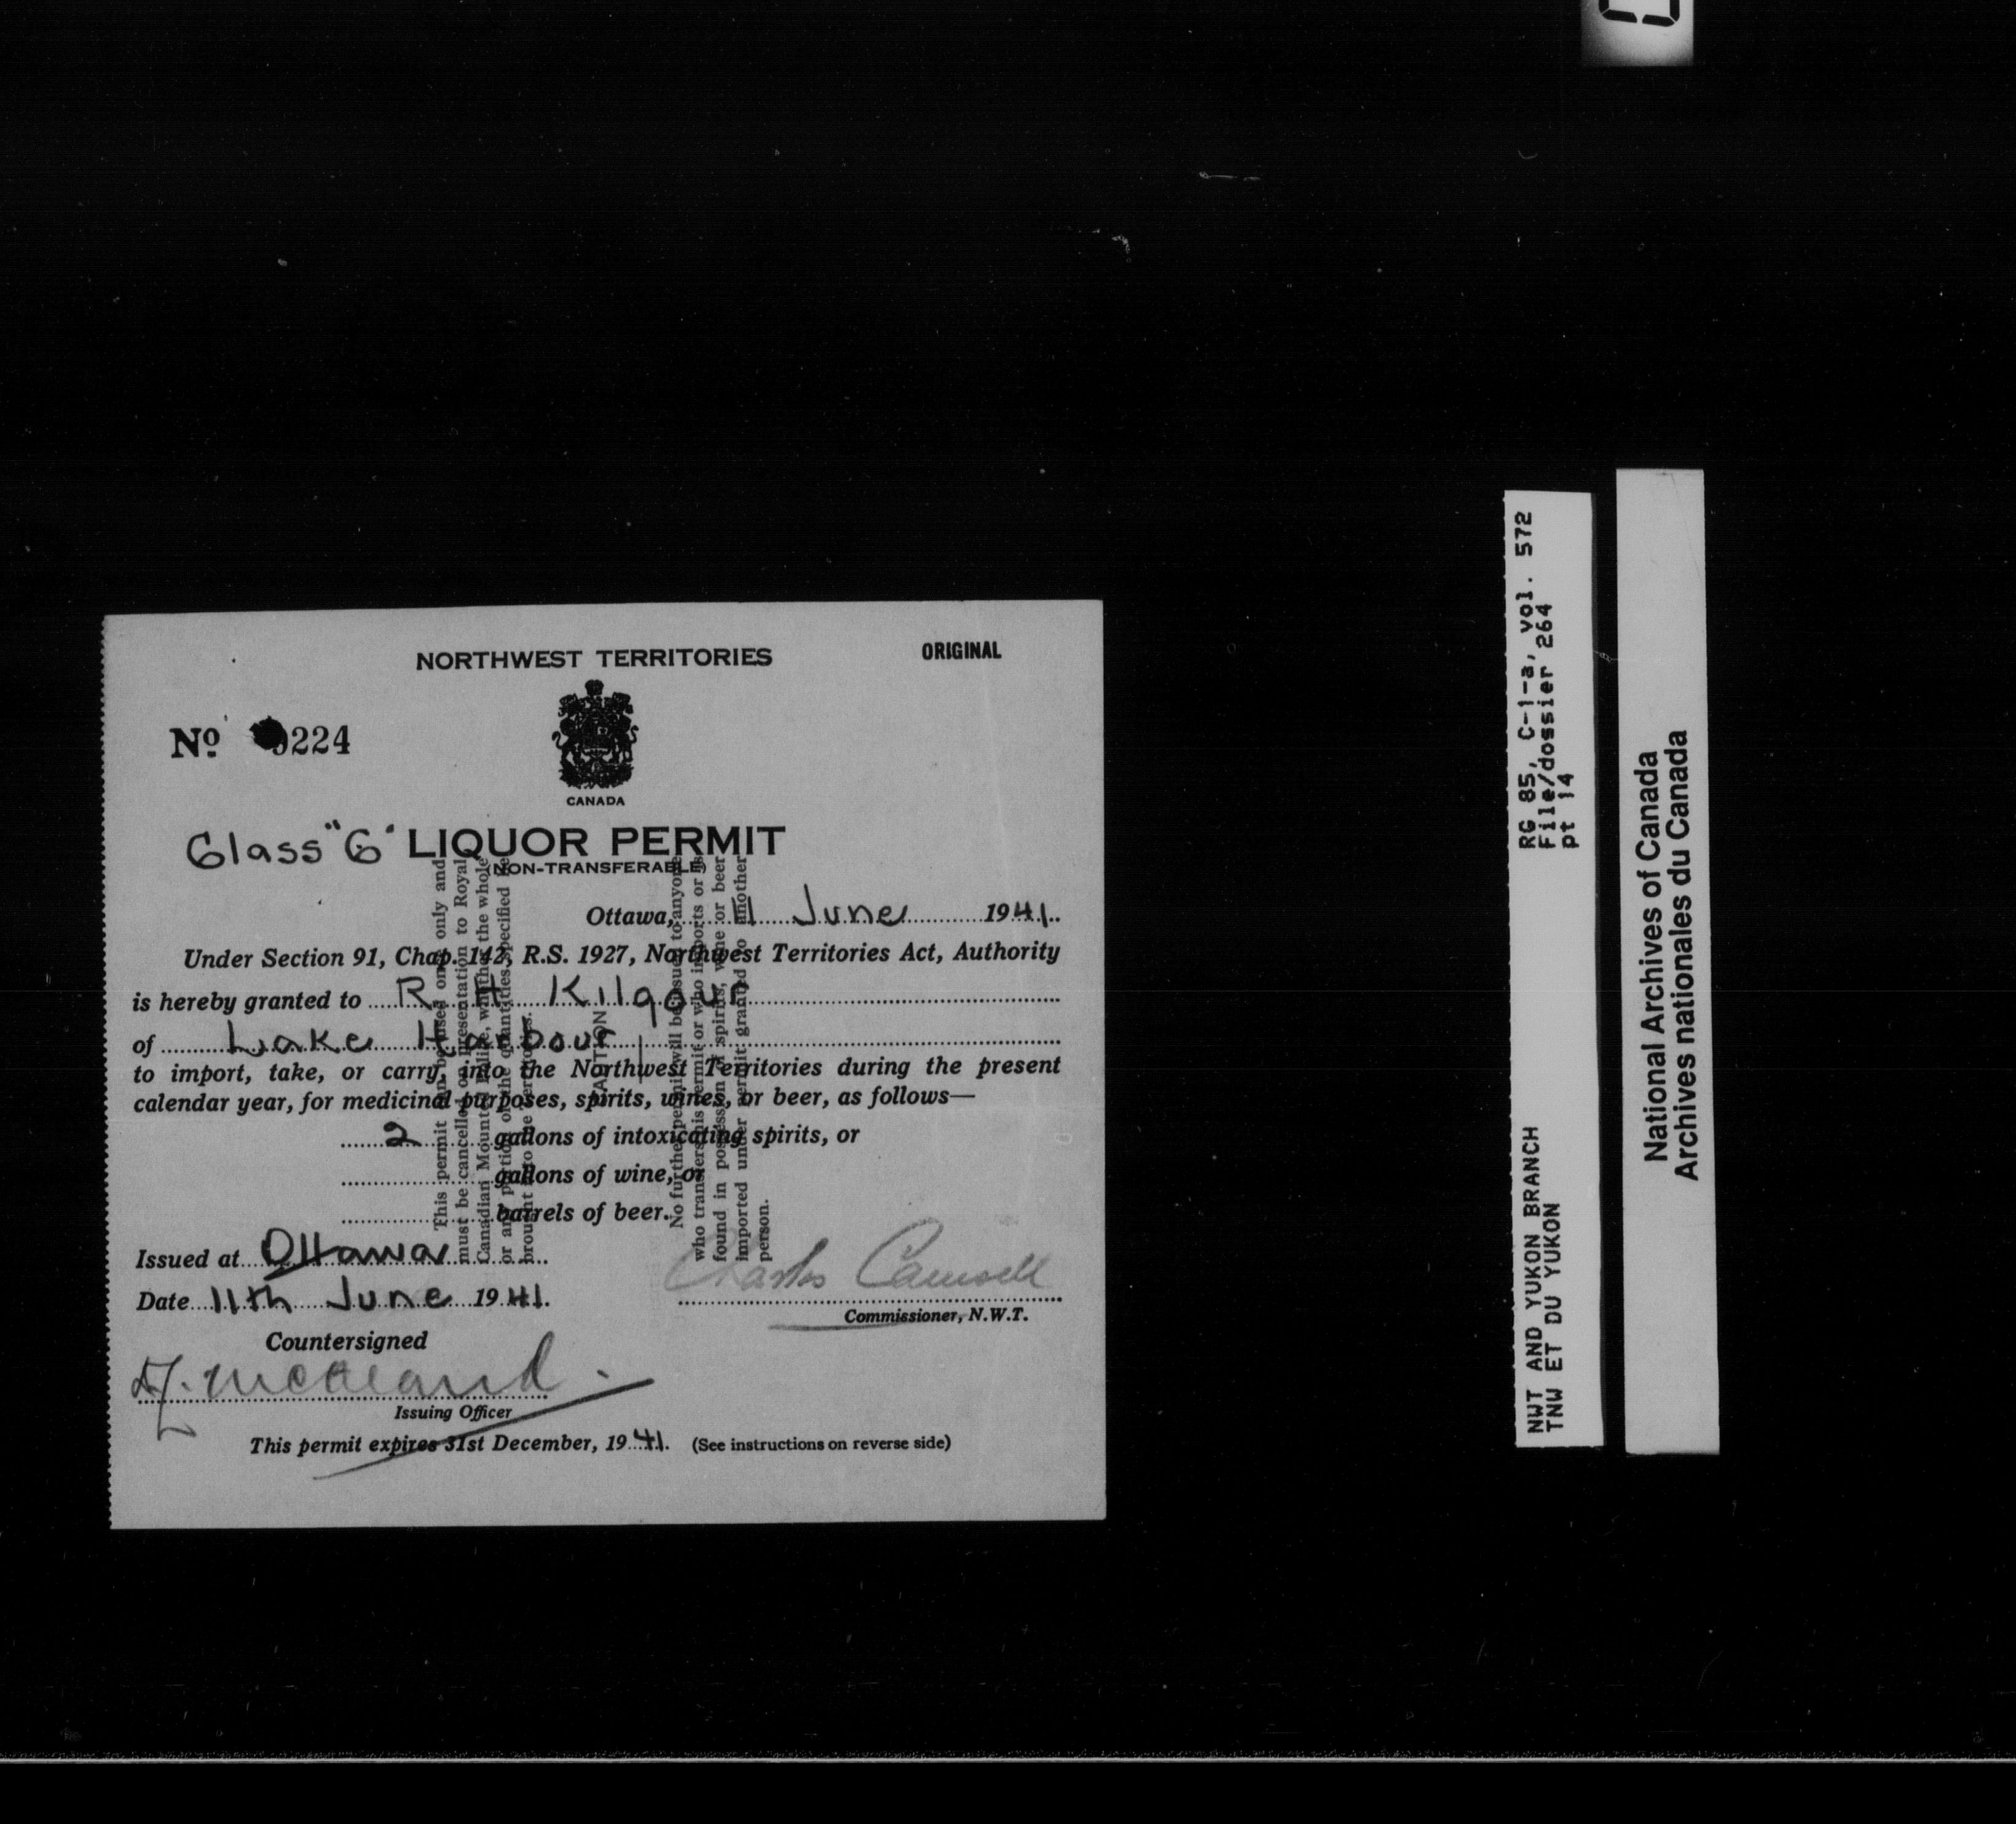 NORTHWEST TERRITORIES
ORIGINAL
Nº 9224
CANADA
Class "G" LIQUOR PERMIT
(NON-TRANSFERABLE)
Ottawa, 11 June 1941.
Under Section 91, Chap. 142, R.S. 1927, Northwest Territories Act, Authority
is hereby granted to R. H Kilgour
of Lake Harbour
to import, take, or carry, into the Northwest Territories during the present
calendar year, for medicinal purposes, spirits, wines, or beer, as follows—
2 gallons of intoxicating spirits, or
gallons of wine, or
barrels of beer.
Issued at Ottawa
Date 11th June 1941.
Charles Camsell
Commissioner, N.W.T.
Countersigned
Issuing Officer
This permit expires 31st December, 1941. (See instructions on reverse side)
This permit can be used once only and
must be cancelled on presentation to Royal
Canadian Mounted Police, whether the whole
or any portion of the quantities specified be
brought into the Territories.
CAUTION
No further permit will be issued to anyone
who transfers his permit or who imports or is
found in possession of spirits, wine or beer
imported under permit granted to another
person.
RG 85, C-1-a, vol. 572
File/dossier 264
pt 14
NWT AND YUKON BRANCH
TNW ET DU YUKON
National Archives of Canada
Archives nationales du Canada